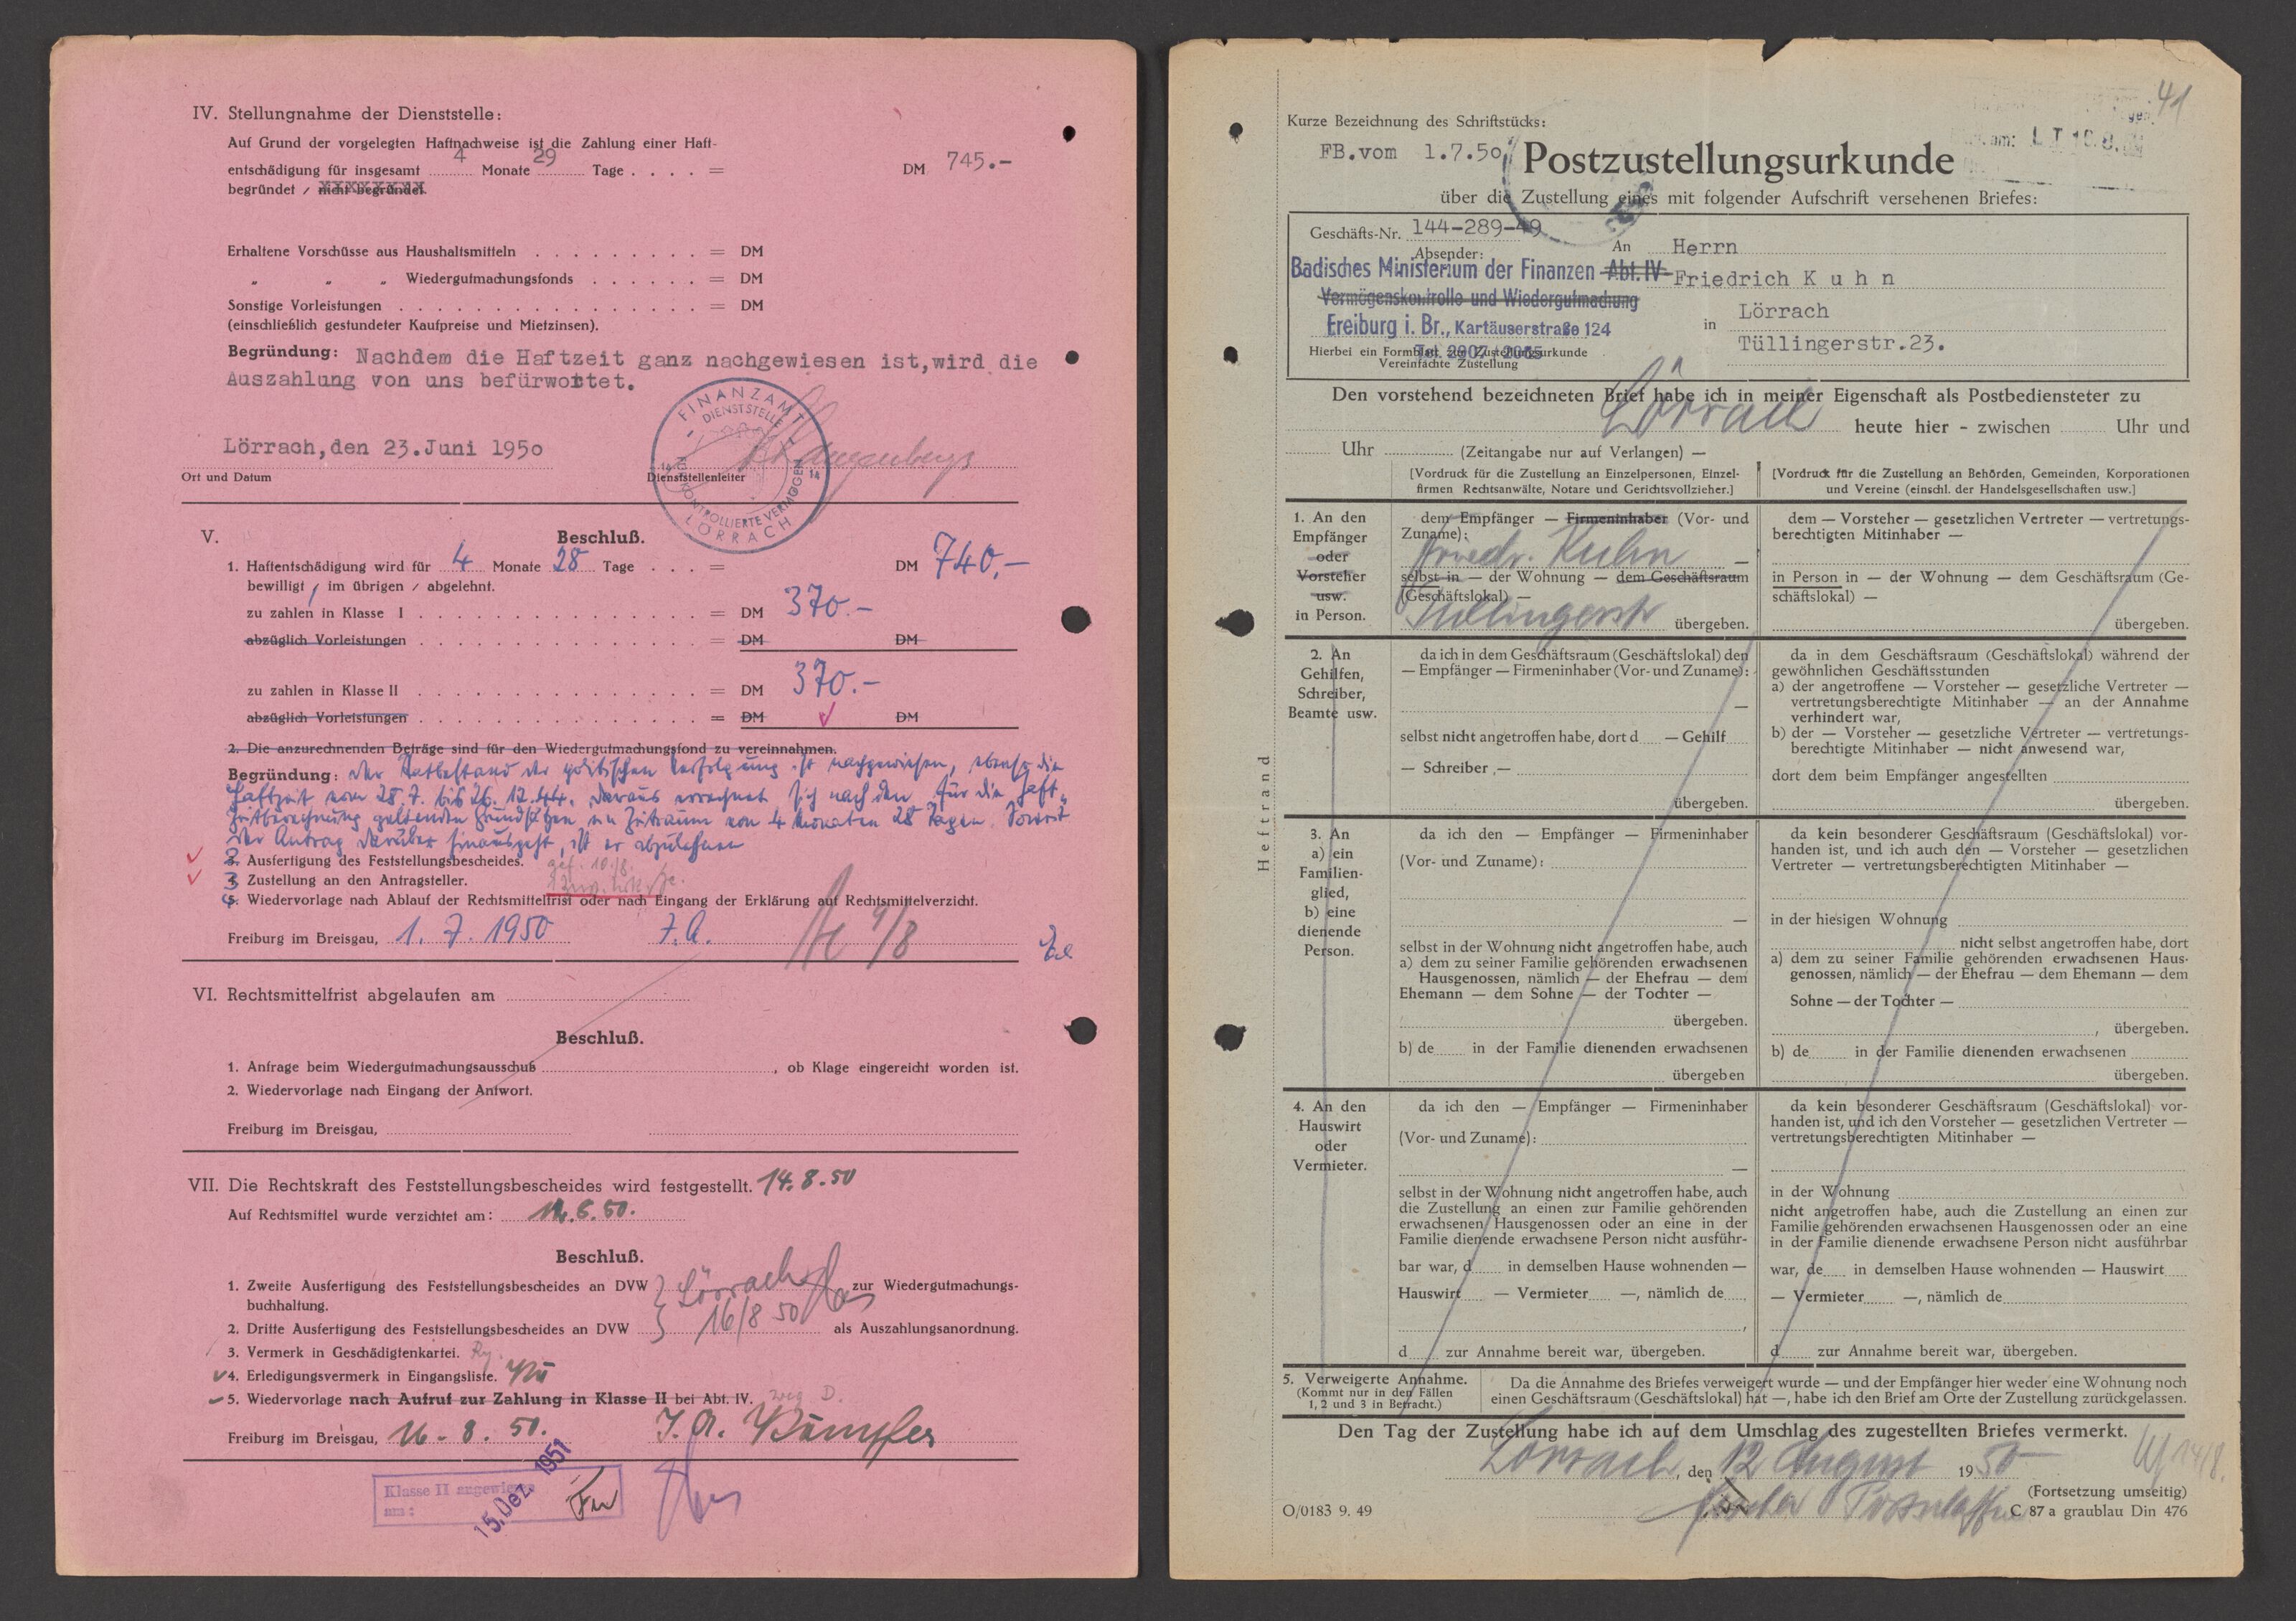 IV. Stellungnahme der Dienststelle:
Auf Grund der vorgelegten Haftnachweise ist die Zahlung einer Haft-
entschädigung für insgesamt 4 Monate 29 Tage . . . . = DM 745.-
begründet / nicht begründet
Erhaltene Vorschüsse aus Haushaltsmitteln . . . . . . . . . = DM
„ „ „ Wiedergutmachungsfonds . . . . . . = DM
Sonstige Vorleistungen . . . . . . . . . . . . . . . . = DM
(einschließlich gestundeter Kaufpreise und Mietzinsen).
Begründung: Nachdem die Haftzeit ganz nachgewiesen ist, wird die
Auszahlung von uns befürwortet.
FINANZAMT
DIENSTSTELLE
KONTROLLIERTE VERMÖGEN
LÖRRACH
14
Lörrach, den 23. Juni 1950
Ort und Datum
Dienststellenleiter
V.
Beschluß.
1. Haftentschädigung wird für 4 Monate 28 Tage . . . = DM 740,-
bewilligt / im übrigen / abgelehnt.
zu zahlen in Klasse I . . . . . . . . . . . . . . . = DM 370.-
abzüglich Vorleistungen . . . . . . . . . . . . . . . = DM DM
zu zahlen in Klasse II . . . . . . . . . . . . . . . = DM 370.-
abzüglich Vorleistungen . . . . . . . . . . . . . . . = DM DM
2. Die anzurechnenden Beträge sind für den Wiedergutmachungsfond zu vereinnahmen.
Begründung: Der Tatbestand der politischen Verfolgung ist nachgewiesen, ebenso die
Haftzeit vom 28.7. bis 26.12.44. Daraus errechnet sich nach den für die Haft-
zeitberechnung geltenden Grundsätzen ein Zeitraum von 4 Monaten 28 Tagen. Soweit
der Antrag darüber hinausgeht, ist er abzulehnen
2. Ausfertigung des Feststellungsbescheides. gef. 10/8.
3 Zustellung an den Antragsteller.
4. Wiedervorlage nach Ablauf der Rechtsmittelfrist oder nach Eingang der Erklärung auf Rechtsmittelverzicht.
Freiburg im Breisgau, 1. 7. 1950 I.A. 9/8
VI. Rechtsmittelfrist abgelaufen am
Beschluß.
1. Anfrage beim Wiedergutmachungsausschuß , ob Klage eingereicht worden ist.
2. Wiedervorlage nach Eingang der Antwort.
Freiburg im Breisgau,
VII. Die Rechtskraft des Feststellungsbescheides wird festgestellt. 14. 8. 50
Auf Rechtsmittel wurde verzichtet am:
Beschluß.
1. Zweite Ausfertigung des Feststellungsbescheides an DVW Lörrach zur Wiedergutmachungs-
buchhaltung.
2. Dritte Ausfertigung des Feststellungsbescheides an DVW 16/8 50 als Auszahlungsanordnung.
3. Vermerk in Geschädigtenkartei.
4. Erledigungsvermerk in Eingangsliste.
5. Wiedervorlage nach Aufruf zur Zahlung in Klasse II bei Abt. IV.
Freiburg im Breisgau, 16. 8. 50. I.A.
Klasse II angewiesen
am:
15. Dez. 1951
41
Kurze Bezeichnung des Schriftstücks:
FB.vom 1.7.50
Postzustellungsurkunde
über die Zustellung eines mit folgender Aufschrift versehenen Briefes:
Geschäfts-Nr. 144-289-49
Absender:
Badisches Ministerium der Finanzen Abt. IV
Vermögenskontrolle und Wiedergutmachung
Freiburg i. Br., Kartäuserstraße 124
Hierbei ein Formblatt zur Zustellungsurkunde
Vereinfachte Zustellung
An Herrn
Friedrich K u h n
in Lörrach
Tüllingerstr.23.
Den vorstehend bezeichneten Brief habe ich in meiner Eigenschaft als Postbediensteter zu
Lörrach heute hier - zwischen Uhr und
Uhr (Zeitangabe nur auf Verlangen) —
[Vordruck für die Zustellung an Einzelpersonen, Einzel-
firmen Rechtsanwälte, Notare und Gerichtsvollzieher.]
[Vordruck für die Zustellung an Behörden, Gemeinden, Korporationen
und Vereine (einschl. der Handelsgesellschaften usw.]
1. An den
Empfänger
oder
Vorsteher
usw.
in Person.
dem Empfänger — Firmeninhaber (Vor- und
Zuname):
Friedr. Kuhn —
selbst in — der Wohnung — dem Geschäftsraum
(Geschäftslokal) —
Tüllingerstr übergeben.
dem — Vorsteher — gesetzlichen Vertreter — vertretungs-
berechtigten Mitinhaber —
in Person in — der Wohnung — dem Geschäftsraum (Ge-
schäftslokal) —
übergeben.
2. An
Gehilfen,
Schreiber,
Beamte usw.
da ich in dem Geschäftsraum (Geschäftslokal) den
— Empfänger — Firmeninhaber (Vor- und Zuname):
—
selbst nicht angetroffen habe, dort d — Gehilf
— Schreiber —
übergeben.
da in dem Geschäftsraum (Geschäftslokal) während der
gewöhnlichen Geschäftsstunden
a) der angetroffene — Vorsteher — gesetzliche Vertreter —
vertretungsberechtigte Mitinhaber — an der Annahme
verhindert war,
b) der — Vorsteher — gesetzliche Vertreter — vertretungs-
berechtigte Mitinhaber — nicht anwesend war,
dort dem beim Empfänger angestellten
übergeben.
3. An
a) ein
Familien-
glied,
b) eine
dienende
Person.
da ich den — Empfänger — Firmeninhaber
(Vor- und Zuname):
—
selbst in der Wohnung nicht angetroffen habe, auch
a) dem zu seiner Familie gehörenden erwachsenen
Hausgenossen, nämlich — der Ehefrau — dem
Ehemann — dem Sohne — der Tochter —
übergeben.
b) de in der Familie dienenden erwachsenen
übergeben
da kein besonderer Geschäftsraum (Geschäftslokal) vor-
handen ist, und ich auch den — Vorsteher — gesetzlichen
Vertreter — vertretungsberechtigten Mitinhaber —
in der hiesigen Wohnung
nicht selbst angetroffen habe, dort
a) dem zu seiner Familie gehörenden erwachsenen Haus-
genossen, nämlich — der Ehefrau — dem Ehemann — dem
Sohne — der Tochter —
, übergeben.
b) de in der Familie dienenden erwachsenen
übergeben.
4. An den
Hauswirt
oder
Vermieter.
da ich den — Empfänger — Firmeninhaber
(Vor- und Zuname):
—
selbst in der Wohnung nicht angetroffen habe, auch
die Zustellung an einen zur Familie gehörenden
erwachsenen Hausgenossen oder an eine in der
Familie dienende erwachsene Person nicht ausführ-
bar war, d in demselben Hause wohnenden —
Hauswirt — Vermieter —, nämlich de
,
d zur Annahme bereit war, übergeben.
da kein besonderer Geschäftsraum (Geschäftslokal) vor-
handen ist, und ich den Vorsteher — gesetzlichen Vertreter —
vertretungsberechtigten Mitinhaber —
in der Wohnung
nicht angetroffen habe, auch die Zustellung an einen zur
Familie gehörenden erwachsenen Hausgenossen oder an eine
in der Familie dienende erwachsene Person nicht ausführbar
war, de in demselben Hause wohnenden — Hauswirt
— Vermieter —, nämlich de
d zur Annahme bereit war, übergeben.
5. Verweigerte Annahme.
(Kommt nur in den Fällen
1, 2 und 3 in Betracht.)
Da die Annahme des Briefes verweigert wurde — und der Empfänger hier weder eine Wohnung noch
einen Geschäftsraum (Geschäftslokal) hat —, habe ich den Brief am Orte der Zustellung zurückgelassen.
Den Tag der Zustellung habe ich auf dem Umschlag des zugestellten Briefes vermerkt.
Lörrach, den 12 August 1950
14/8.
(Fortsetzung umseitig)
O/0183 9. 49
C 87 a graublau Din 476
Heftrand